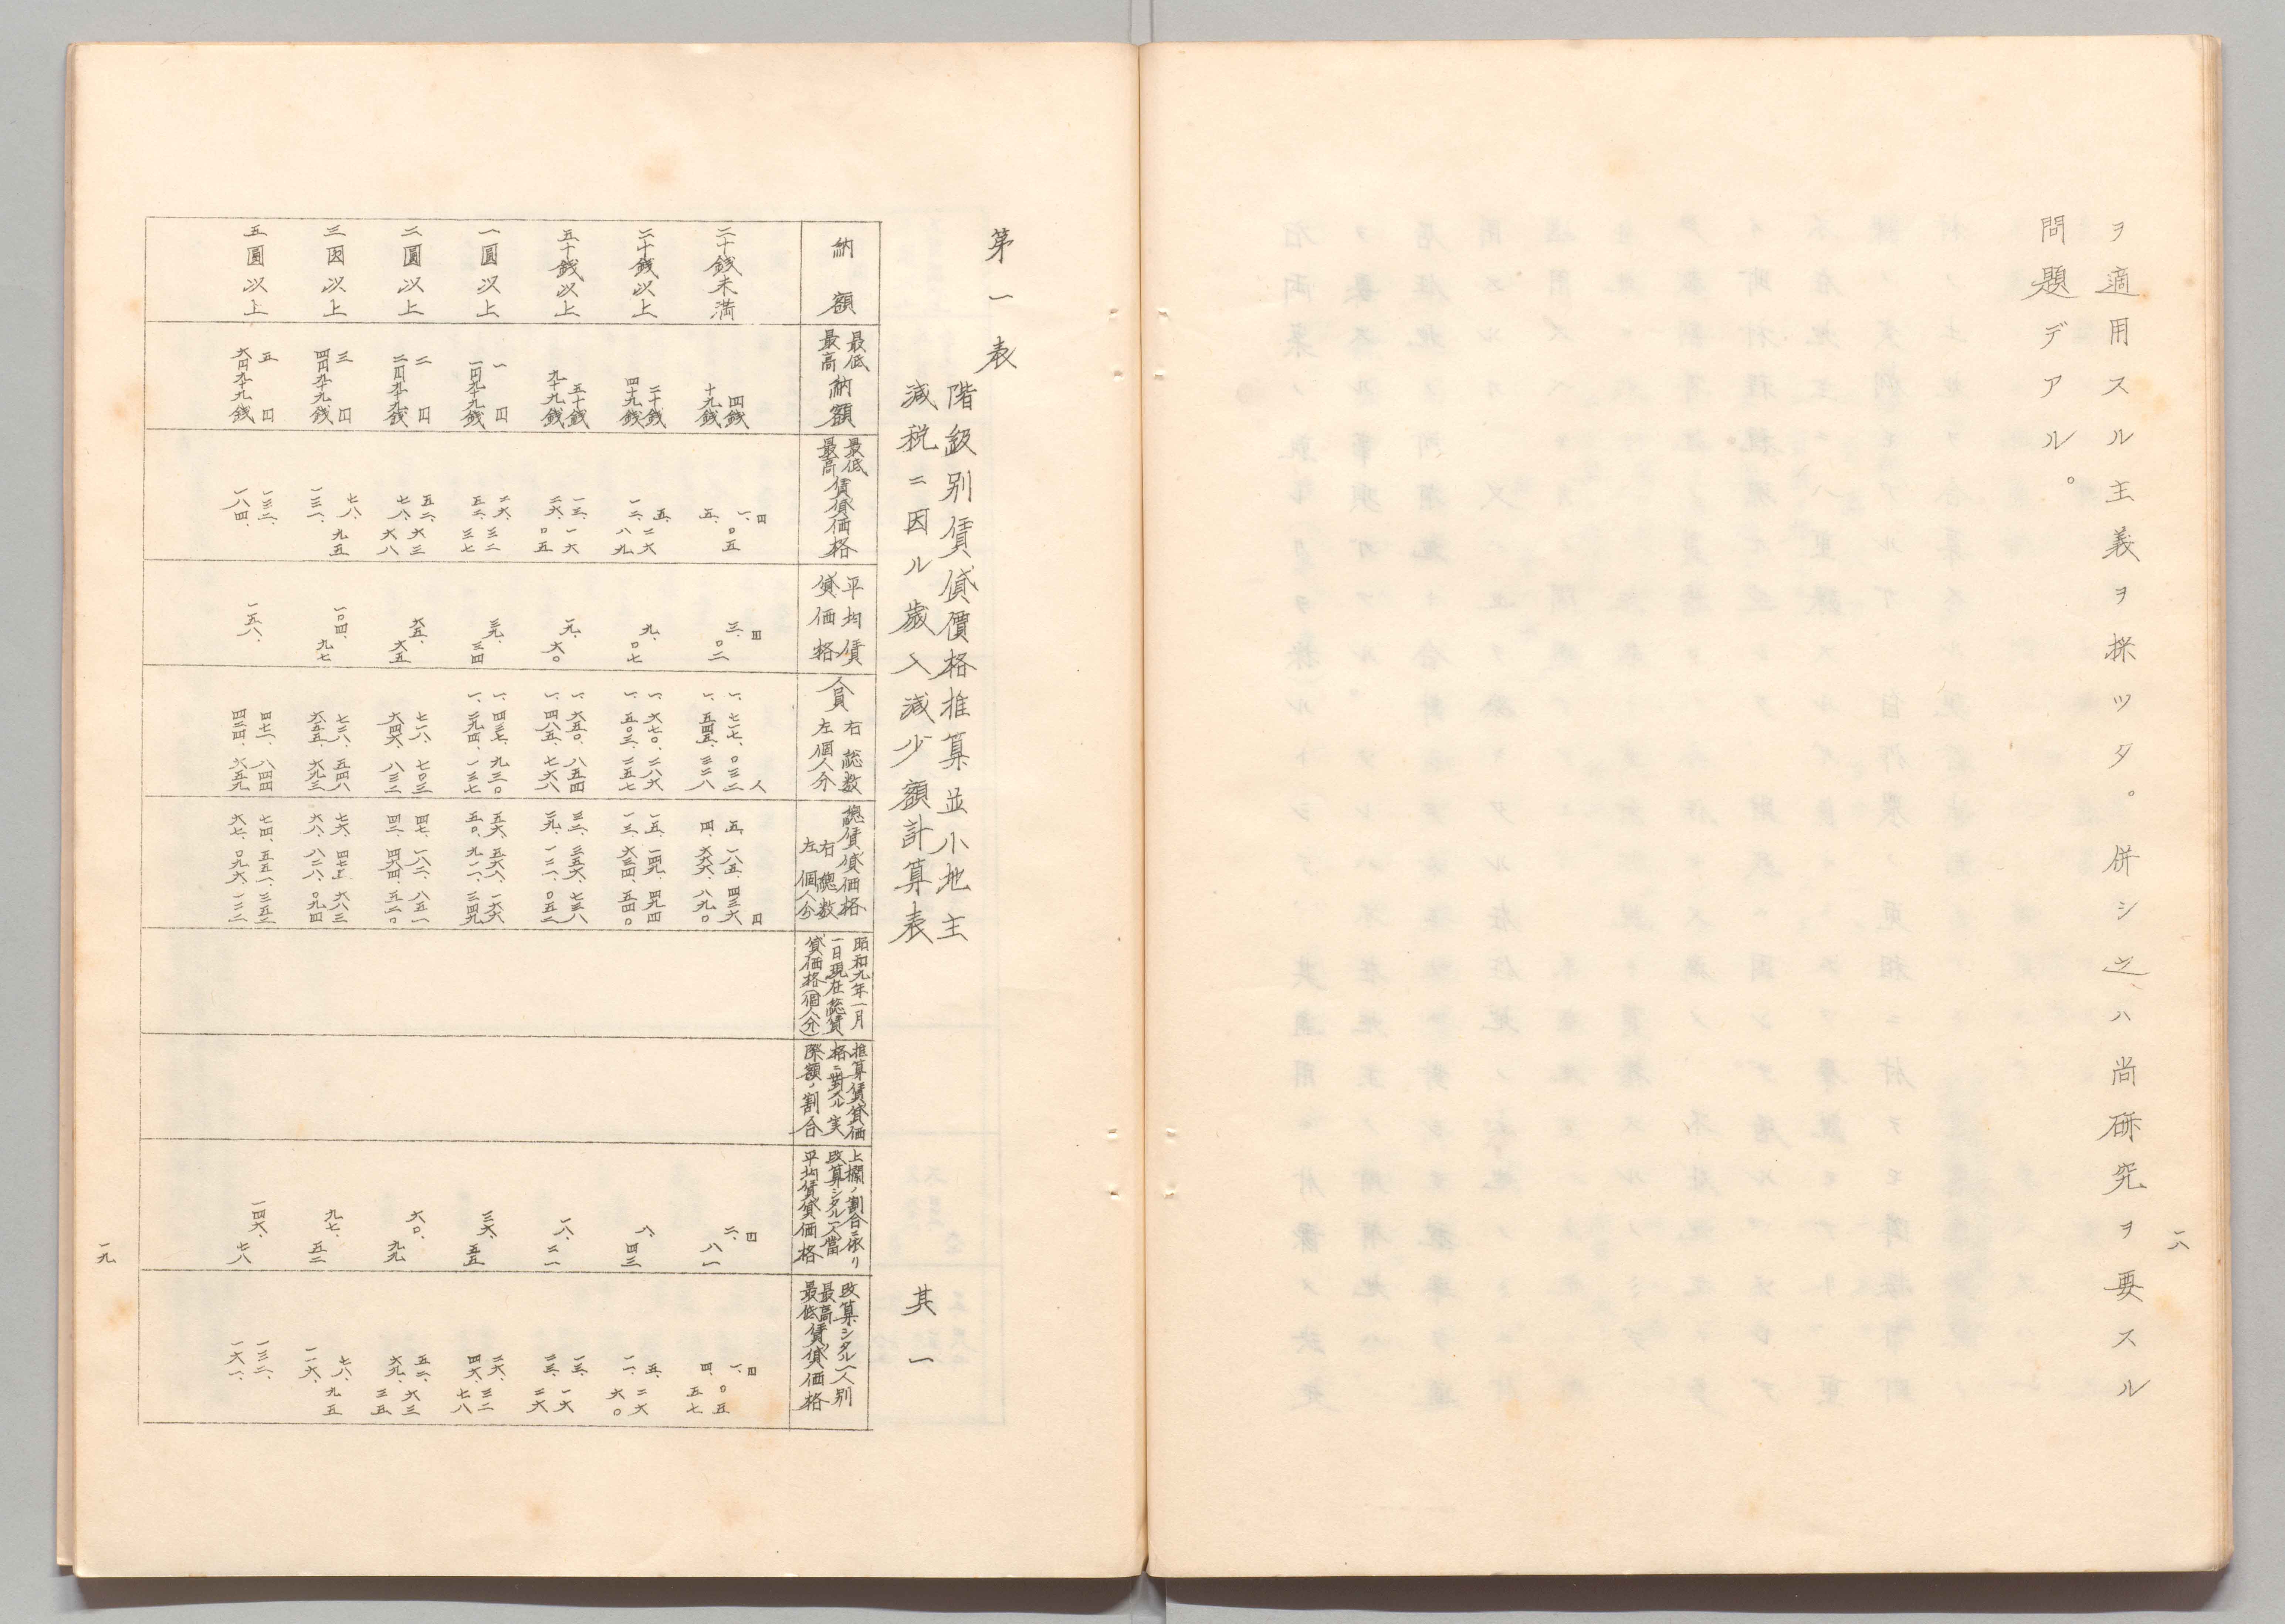 ヲ適用スル主義ヲ採ツタ。併シ之ハ尚研究ヲ要スル
問題デアル。
一八
第一表
階級別賃貸價格推算並小地主
減税ニ因ル歳入減少額計算表
其一
納額
最低
最高
納額
最低
最高
賃貸価格
平均賃
貸価格
人員
右総数
左個人分
總賃貸価格
右總数
左個人分
昭和九年一月
一日現在総賃
貸価格(個人分)
推算賃貸価
格ニ對スル実
際額ノ割合
上欄ノ割合ニ依リ
改算シタル一人當
平均賃貸価格
改算シタル一人別
最高
最低
賃貸価格
二十銭未満
四銭
十九銭
円
一、〇五
五、
円
三、〇二
人
一、七一七、〇三二
一、五四五、三二八
円
五、一八五、四三六
四、六六六、八九〇
円
二、八一
円
一、〇五
四、五七
二十銭以上
二十銭
四十九銭
五、二六
一二、八九
九、〇七
一、六七〇、二八六
一、五〇三、二五七
一五、一四九、四九四
一三、六三四、五四〇
八、四三
五、二六
一一、六〇
五十銭以上
五十銭
九十九銭
一三、一六
二六、〇五
一九、六〇
一、六五〇、八五四
一、四八五、七六八
三二、三五六、七三八
二九、一二一、〇五二
一八、二一
一三、一六
二三、二六
一圓以上
一円
一円九十九銭
二六、三二
五二、三七
三九、三四
一、四三七、九三〇
一、二九四、一三七
五六、五六八、一六六
五〇、九一一、三四九
三六、五五
二六、三二
四六、七八
二圓以上
二円
二円九十九銭
五二、六三
七八、六八
六五、六五
七一八、七〇三
六四六、八三二
四七、一八二、八五一
四二、四六四、五二〇
六〇、九九
五二、六三
六九、三五
三因以上
三円
四円九十九銭
七八、九五
一三一、
一〇四、九七
七二八、五四八
六五五、六九三
七六、四七五、六八三
六八、八二八、〇九四
九七、五二
七八、九五
一一六、
五圓以上
五円
六円九十九銭
一三二、
一八四、
一五八、
四七一、八四四
四二四、六五九
七四、五五一、三五二
六七、〇九六、一二二
一四六、七八
一三二、
一六一、
一九